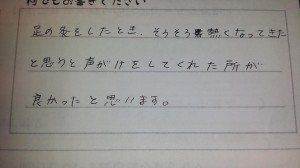 何でもお書きください
足の灸をしたとき、そろそろ熱くなってきた
と思うと声がけをしてくれた所が
良かったと思います。